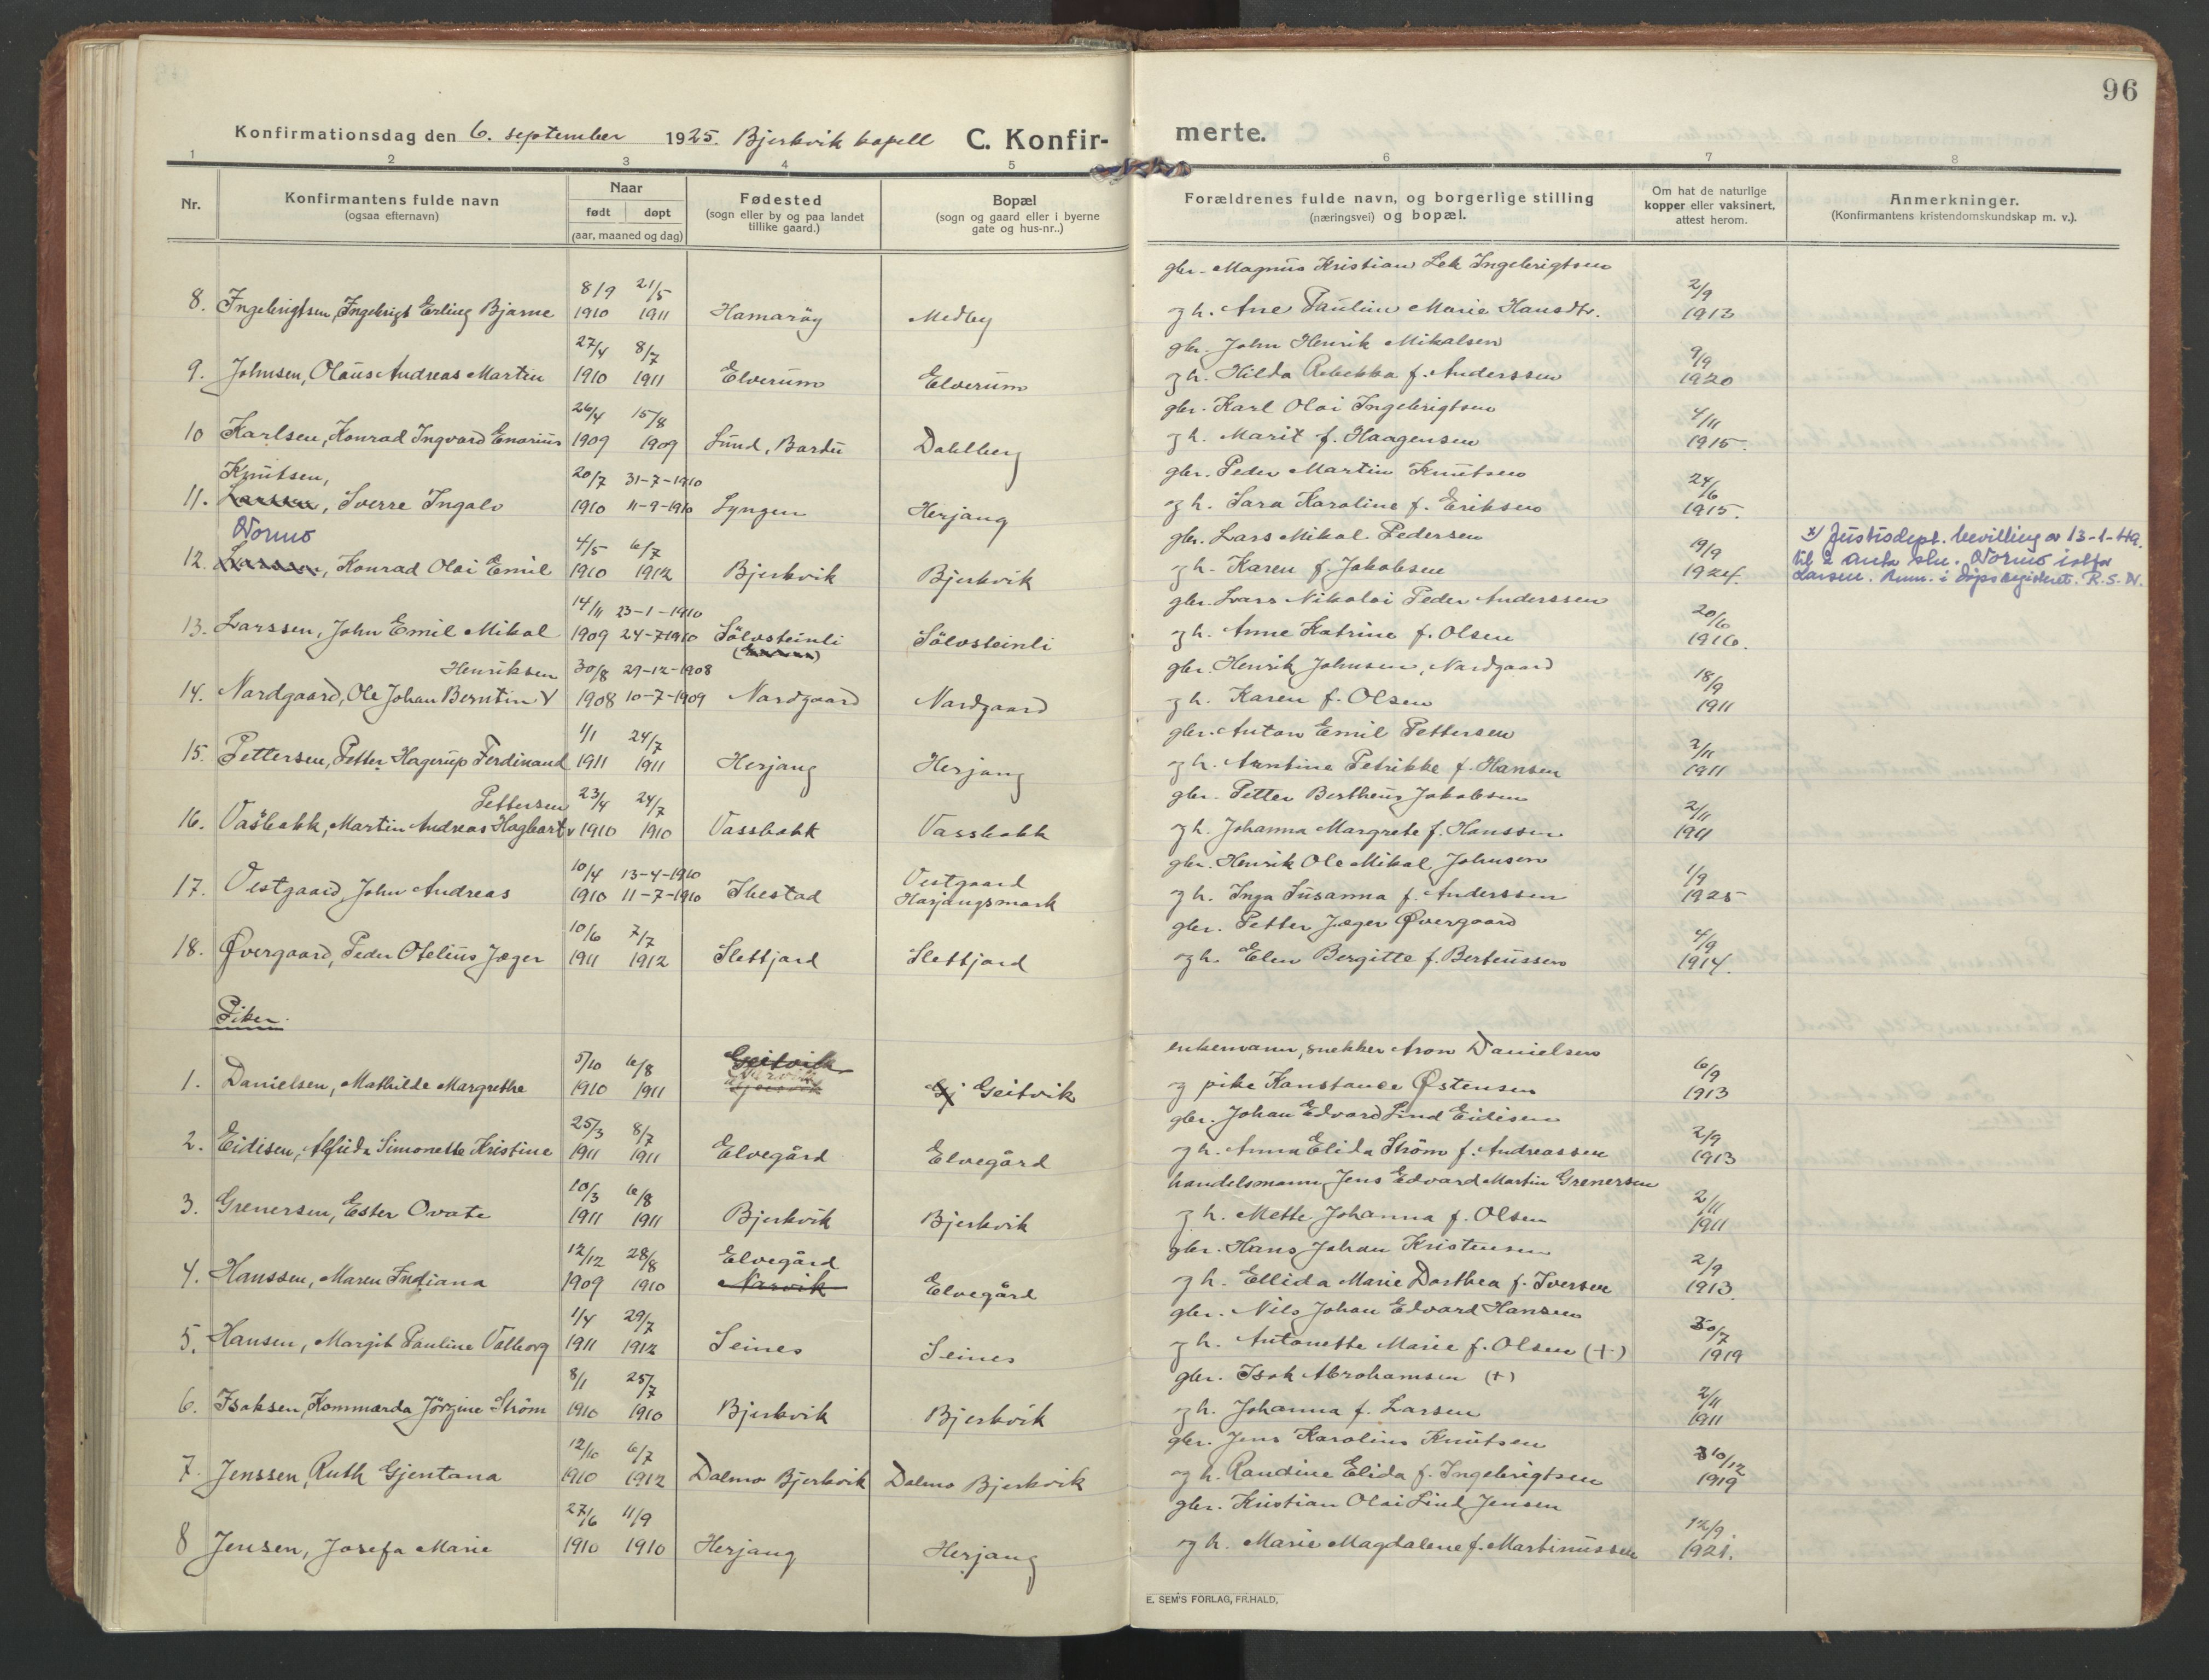 96
Konfirmationsdag den 6. september 1925. Bjerkvik kapell C. Konfir- merte.
1 2 3 4 5 6 7 8
Nr.
Konfirmantens fulde navn
(ogsaa efternavn)
Naar
født døpt
(aar, maaned og dag)
Fødested
(sogn eller by og paa landet
tillike gaard.)
Bopæl
(sogn og gaard eller i byerne
gate og hus-nr..)
Forældrenes fulde navn, og borgerlige stilling
(næringsvei) og bopæl.
Om hat de naturlige
kopper eller vaksinert,
attest herom.
Anmerkninger.
(Konfirmantens kristendomskundskap m. v.).
gbr. Magnus Kristian Lek Ingebrigtsen
8/9 21/5 2/9
8. Ingebrigtsen, Ingebrigt Erling Bjarne 1910 1911 Hamarøy Medby og h. Ane Pauline Marie Hansdtr. 1913
27/4 8/7 gbr. John Henrik Mikalsen 9/9
9. Johnsen, Olaus Andreas Martin 1910 1911 Elverum Elverum og h. Hilda Rebekka f. Anderssen 1920
26/4 15/8 gbr. Karl Olai Ingebrigtsen 4/11
10 Karlsen, Konrad Ingvard Enarius 1909 1909 Lund, Bardu Dahlberg og h. Marit f. Haagensen 1915.
Knutsen, 20/7 31-7-1910 gbr. Peder Martin Knutsen 24/6
11. Larssen, Sverre Ingolv 1910 11-9-1910 Lyngen Herjang og h. Sara Karoline f. Eriksen 1915.
Normo 4/5 6/7 gbr. Lars Mikal Pedersen 19/9 x) Justisdept. bevilling av 13-1-49.
12. Larssen, Konrad Olai Emil 1910 1912 Bjerkvik Bjerkvik og h. Karen f. Jakobsen 1924. til å anta sln. Normo istfor
Larsen. Anm. i døpsregisteret. R.S.N.
14/11 23-1-1910 gbr. Lars Nikolai Peder Anderssen 20/6
13. Larssen, John Emil Mikal 1909 24-7-1910 Sølvsteinli Sølvsteinli og h. Anne Katrine f. Olsen 1916.
Henriksen 30/8 29-12-1908 gbr. Henrik Johnsen, Nardgaard 18/9
14. Nardgaard, Ole Johan Berntin V 1908 10-7-1909 Nardgaard Nardgaard og h. Karen f. Olsen 1911
1/1 24/7 gbr. Anton Emil Pettersen 2/11
15. Pettersen, Petter Hagerup Ferdinand 1911 1911 Herjang Herjang og h. Arntine Petrikke f. Hansen 1911
Pettersen 23/4 24/7 gbr. Petter Bertheus Jakobsen 2/11
16. Vasbakk, Martin Andreas Hagbart v 1910 1910 Vassbakk Vassbakk og h. Johanna Margrete f. Hanssen 1911
10/4 13-4-1910 Vestgaard gbr. Henrik Ole Mikal Johnsen 1/9
17. Vestgaard, John Andreas 1910 11-7-1910 Ibestad Harjangsmark og h. Inga Susanna f. Anderssen 1925
10/6 7/7 gbr. Petter Jæger Øvergaard 4/9
18. Øvergaard, Peder Otelius Jæger 1911 1912 Slettjord Slettjord og h. Elen Bergitte f. Berteussen 1914.
Piker.
5/10 6/8 Geitvik enkemann, snekker Aron Danielsen 6/9
1. Danielsen, Mathilde Margrethe 1910 1911 Geitvik og pike Konstance Østensen 1913
25/3 8/7 gbr. Johan Edvard Lind Eidisen 2/9
2. Eidisen, Alfrida Simonette Kristine 1911 1911 Elvegård Elvegård og h. Anna Elida Strøm f. Andreassen 1913
10/3 6/8 handelsmann Jens Edvard Martin Grenersen 2/11
3. Grenersen, Ester Ovate 1911 1911 Bjerkvik Bjerkvik og h. Mette Johanna f. Olsen 1911
12/12 28/8 Elvegård gbr. Hans Johan Kristensen 2/9
4. Hanssen, Maren Indiana 1909 1910 Narvik Elvegård og h. Ellida Marie Dorthea f. Iversen 1913.
1/4 29/7 gbr. Nils Johan Edvard Hansen 30/7
5. Hansen, Margit Pauline Valborg 1911 1912 Seines Seines og h. Antonette Marie f. Olsen (+) 1919
8/1 25/7 gbr. Isak Abrahamsen (+) 2/11
6. Isaksen, Hommarda Jørgine Strøm 1910 1910 Bjerkvik Bjerkvik og h. Johanna f. Larsen 1911
12/10 6/7 gbr. Jens Karolius Knutsen 30/12
7. Jenssen, Ruth Gjentana 1910 1912 Dalmo Bjerkvik Dalmo Bjerkvik og h. Randine Elida f. Ingebrigtsen 1919
27/6 11/9 gbr. Kristian Olai Lind Jensen 12/9.
8 Jensen, Josefa Marie 1910 1910 Herjang Herjang og h. Marie Magdalene f. Martinussen 1921.
E. SEM'S FORLAG, FR.HALD,